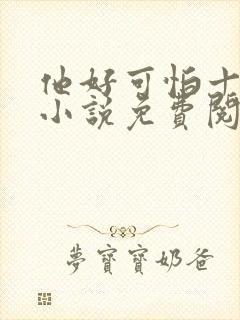 他好可怕十
小说免费阅
夢寶寶奶爸